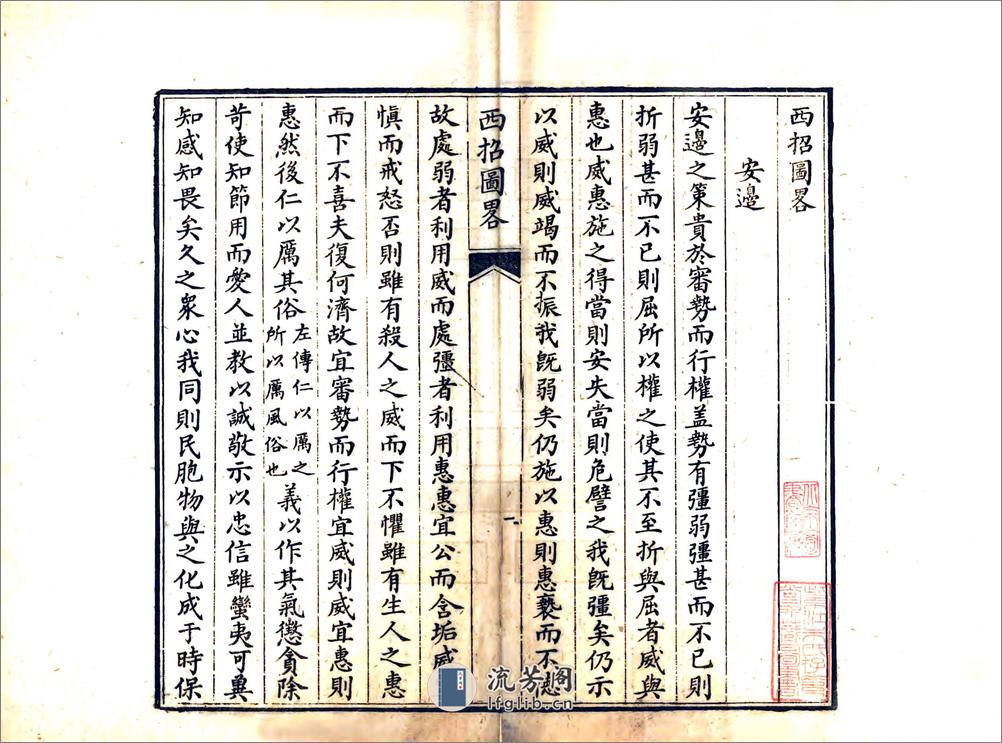 西招圖畧
安邊
安邊之策貴於審勢而行權盖勢有彊弱彊甚而不已則
折弱甚而不已則屈所以權之使其不至折與屈者威與
惠也威惠施之得當則安失當則危譬之我旣彊矣仍示
以威則威竭而不振我旣弱矣仍施以惠則惠褻而不
西招圖畧
一
故處弱者利用威而處彊者利用惠惠宜公而含垢威
愼而戒怒否則雖有殺人之威而下不懼雖有生人之惠
而下不喜夫復何濟故宜審勢而行權宜威則威宜惠則
惠然後仁以厲其俗左傳仁以厲之所以厲風俗也義以作其氣懲貪除
苛使知節用而愛人並教以誠敬示以忠信雖蠻夷可兾
知感知畏矣久之衆心我同則民胞物與之化成于時保
流芳阁
lfglib.cn